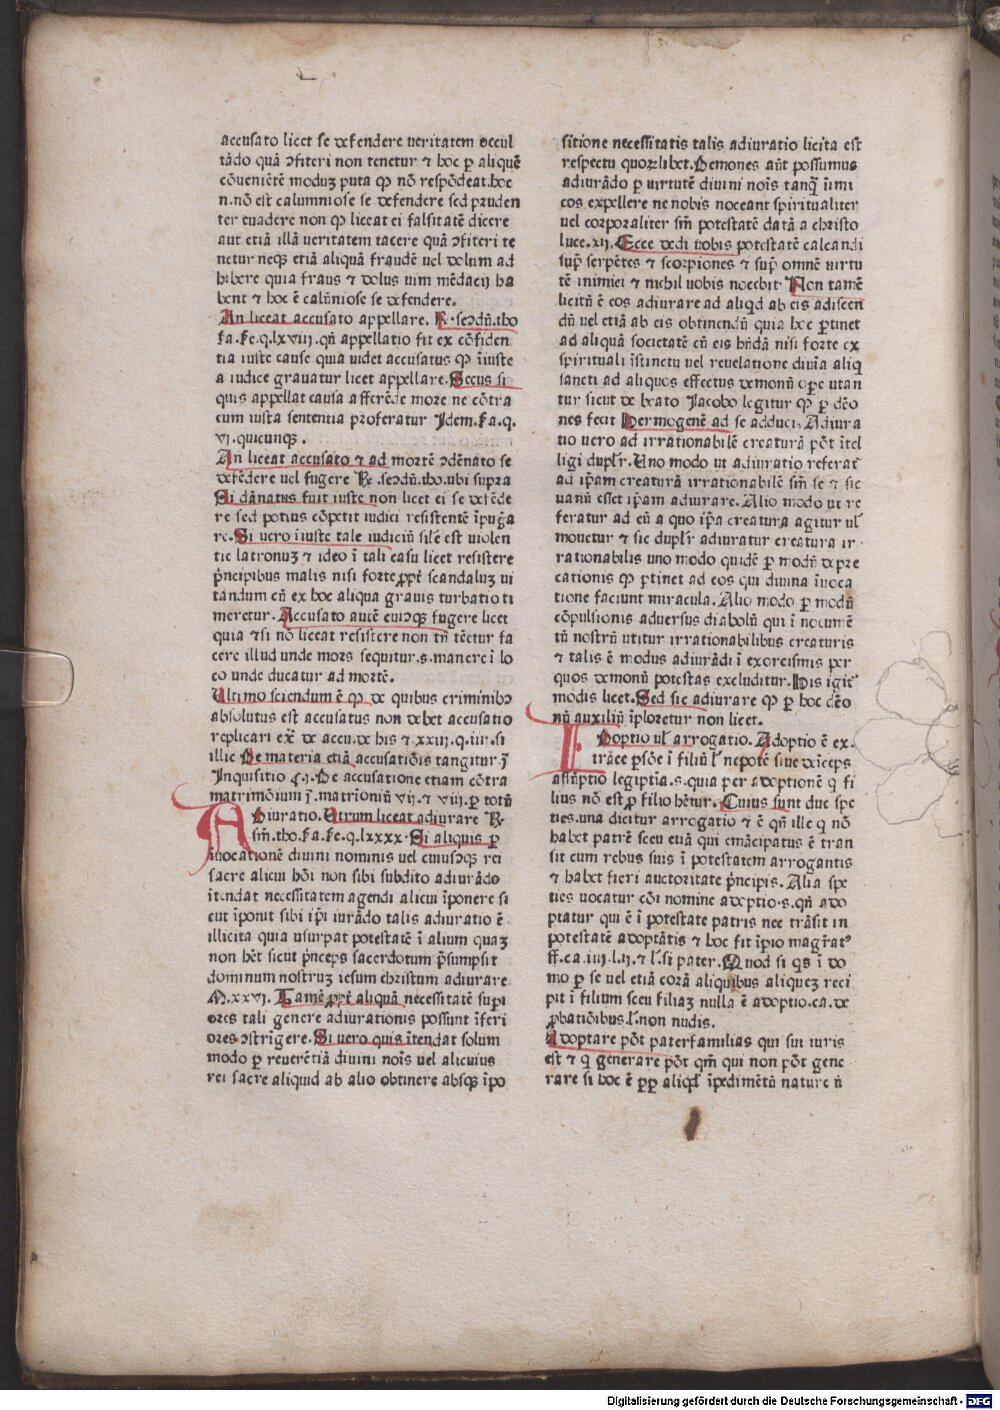 accusato licet se defendere ueritatem occul
tādo quā ↄfiteri non tenetur ⁊ hoc ꝑ aliquē
cōueniētē moduꝫ puta ꝙ nō respōdeat.hoc
n.nō est calumniose se defendere sed pruden
ter euadere non ꝙ liceat ei falsitatē dicere
aut etiā illā ueritatem tacere quā ↄfiteri te
netur neqꝫ etiā aliquā fraudē uel dolum ad
hibere quia fraus ⁊ dolus uim mēdacij ha
bent ⁊ hoc ē calūniose se defendere.
An liceat accusato appellare. ℞.secdm̄.tho
ẜa.ẜe.q.lxviij.qn̄ appellatio fit ex cōfiden
tia iuste cause quia uidet accusatus ꝙ īiuste
a iudice grauatur licet appellare.Secus si
quis appellat causa afferēde more ne cōtra
eum iusta sententia proferatur Idem.ẜa.q.
vj.quicunqꝫ.
An liceat accusato ⁊ ad mortē ↄdēnato se
defēdere uel fugere ℞.secdm̄.tho.ubi supra
Si dānatus fuit iuste non licet ei se defēde
re sed potius cōpetit iudici resistentē īpuḡa
re.Si uero īiuste tale iudiciū silē est uiolen
tie latronuꝫ ⁊ ideo ī tali casu licet resistere
pͥncipibus malis nisi forte ꝓptē scandaluꝫ ui
tandum cū ex hoc aliqua grauis turbatio ti
meretur. Accusato autē cuicqꝫ fugere licet
quia ⁊si nō liceat resistere non tn̄ tēetur fa
cere illud unde mors sequitur.s.manere ī lo
co unde ducatur ad mortē.
Ultimo sciendum ē ꝙ de quibus criminibꝰ
absolutus est accusatus non debet accusatio
replicari ex̄ de accu.de his ⁊ xxiij.q.iiij.si
illic De materia etiā accusatiōis tangitur j̄
Inquisitio ꝶ.j.De accusatione etiam cōtra
matrimōium j̄.matrīoniū vij.⁊ viij.ꝑ totū
ADiuratio.Utrum liceat adiurare ℞.
ẜm̄.tho.ẜa.ẜe.q.lxxxx.Si aliquis ꝑ
īuocationē diuini nominis uel cuiuscqꝫ rei
sacre alicui hōi non sibi subdito adiurādo
itendat necessitatem agendi alicui īponere si
cut īponit sibi ip̄i iurādo talis adiuratio ē
illicita quia usurpat potestatē ī alium quaꝫ
non hēt sicut pͥnceps sacerdotum p̄sumpsit
dominum nostruꝫ iesum christum adiurare
M.xxvj. Tamē ꝓptē aliquā necessitatē supi
ores tali genere adiurationis possunt īferi
ores ↄstrīgere. Si uero quis ītendat solum
modo ꝑ reuerētiā diuini nois̄ uel alicuius
rei sacre aliquid ab alio obtinere absqꝫ īpo
sitione necessitatis talis adiuratio licita est
respectu quoꝝlibet.Demones aūt possumus
adiurādo ꝑ uirtutē diuini nois̄ tanq̄ īimi
cos expellere ne nobis noceant spiritualiter
uel corporaliter ẜm̄ potestatē datā a christo
luce.xij.Ecce dedi uobis potestatē calcandi
sup̄ serpētes ⁊ scorpiones ⁊ sup̄ omnē uirtu
tē inimici ⁊ nichil uobis nocebit.Non tamē
licitū ē eos adiurare ad aliqd ab eis adiscen
dū uel etiā ab eis obtinendū quia hoc ꝑtinet
ad aliquā societatē cū eis hn̄dā nisi forte ex
spirituali īstinctu uel reuelatione diuīa aliq
sancti ad aliquos effectus demonū oꝑe utan
tur sicut de beato Jacobo legitur ꝙ ꝑ dēo
nes fecit Hermogenē ad se adduci.Adiura
tio uero ad irrationabilē creaturā pōt ītel
ligi duplr̄.Uno modo ut adiuratio referat̄
ad ip̄am creaturā irrationabilē ẜm̄ se ⁊ sic
uanū esset ip̄am adiurare.Alio modo ut re
feratur ad eū a quo ip̄a creatura agitur ul̄
mouetur ⁊ sic duplr̄ adiuratur creatura ir
rationabilis uno modo quidē ꝑ modū depre
cationis ꝙ ꝑtinet ad eos qui diuina īuoca
tione faciunt miracula.Alio modo ꝑ modū
cōpulsionis aduersus diabolū qui ī nocumē
tū nostrū utitur irrationabilibus creaturis
⁊ talis ē modus adiurādi ī exorcismis per
quos demonū potestas excluditur.His igit̄
modis licet.Sed sic adiurare ꝙ ꝑ hoc dēo
nū auxiliū īploretur non licet.
ADoptio ul̄ arrogatio.Adoptio ē ex
trāee ꝑsōe ī filiū l̄ nepotē siue deīceps
assūptio legiptia.s.quia per adoptionē q̄ fi
lius nō est ꝓ filio hētur. Cuius sunt due spe
ties.una dicitur arrogatio ⁊ ē qn̄ ille q̄ nō
habet patrē seu euā qui emācipatus ē tran
sit cum rebus suis ī potestatem arrogantis
⁊ habet fieri auctoritate pͥncipis.Alia spe
ties uocatur cōi nomine adoptio.s.qn̄ ado
ptatur qui ē ī potestate patris nec trāsit in
potestatē adoptātis ⁊ hoc fit īpio magr̄atꝰ
ff.ca.iiij.l.ij.⁊ l.si pater.Quod si qs ī do
mo ꝑ se uel etiā corā aliquibus aliqueꝫ reci
pit ī filium seu filiaꝫ nulla ē adoptio.ca.de
ꝓbatiōibus.l.non nudis.
Adoptare pōt paterfamilias qui sui iuris
est ⁊ q̄ generare pōt qm̄ qui non pōt gene
rare si hoc ē ꝓp̄ aliqd̄ īpedimētū nature n̄
Digitalisierung gefördert durch die Deutsche Forschungsgemeinschaft - DFG